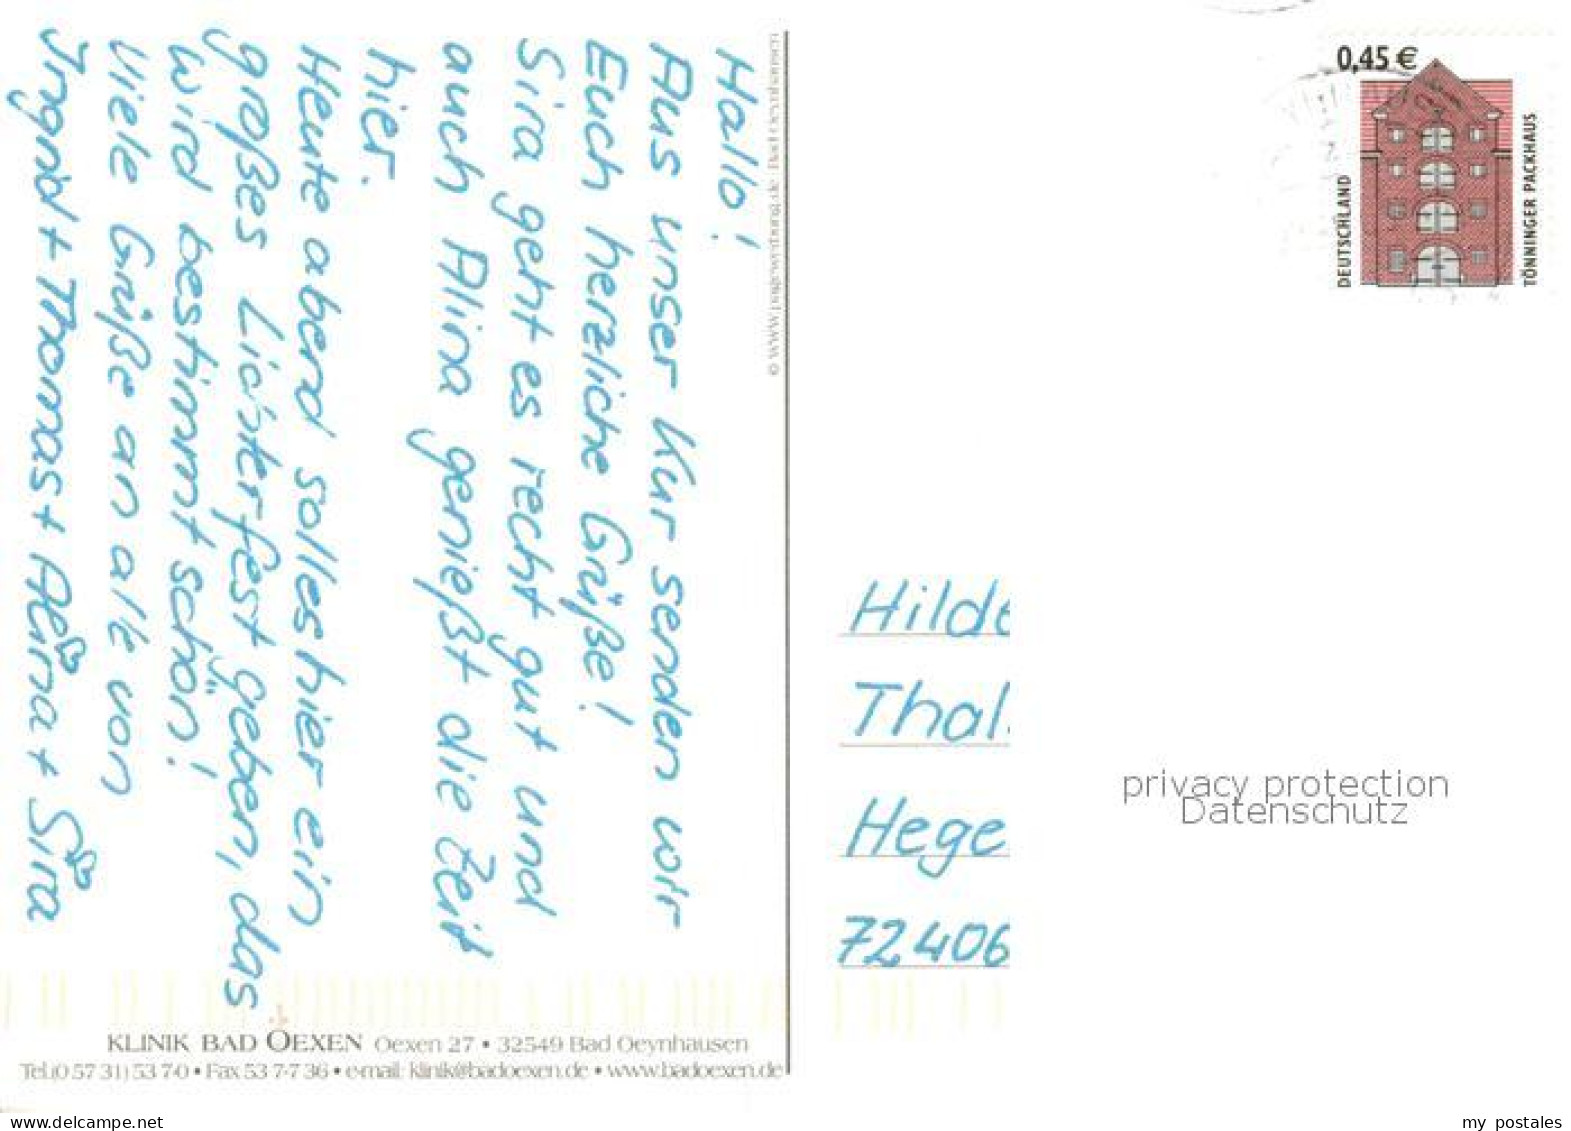 Hallo!
Aus unser Kur senden wir
Euch herzliche Grüße!
Sira geht es recht gut und
auch Alina genießt die Zeit
hier.
Heute abend solles hier ein
großes Lichterfest geben, das
wird bestimmt schön!
Viele Grüße an alle von
Ingrid + Thomas + Alina + Sira
KLINIK BAD OEXEN Oexen 27 • 32549 Bad Oeynhausen
Tel.(0 57 31) 53 7-0 • Fax 53 7-7 36 • e-mail: klinik@badoexen.de • www.badoexen.de
Bad Oeynhausen
0,45 €
DEUTSCHLAND
TÖNNINGER PACKHAUS
Hilde
Thal
Hege
72406
privacy protection
Datenschutz
www.delcampe.net
my_postales